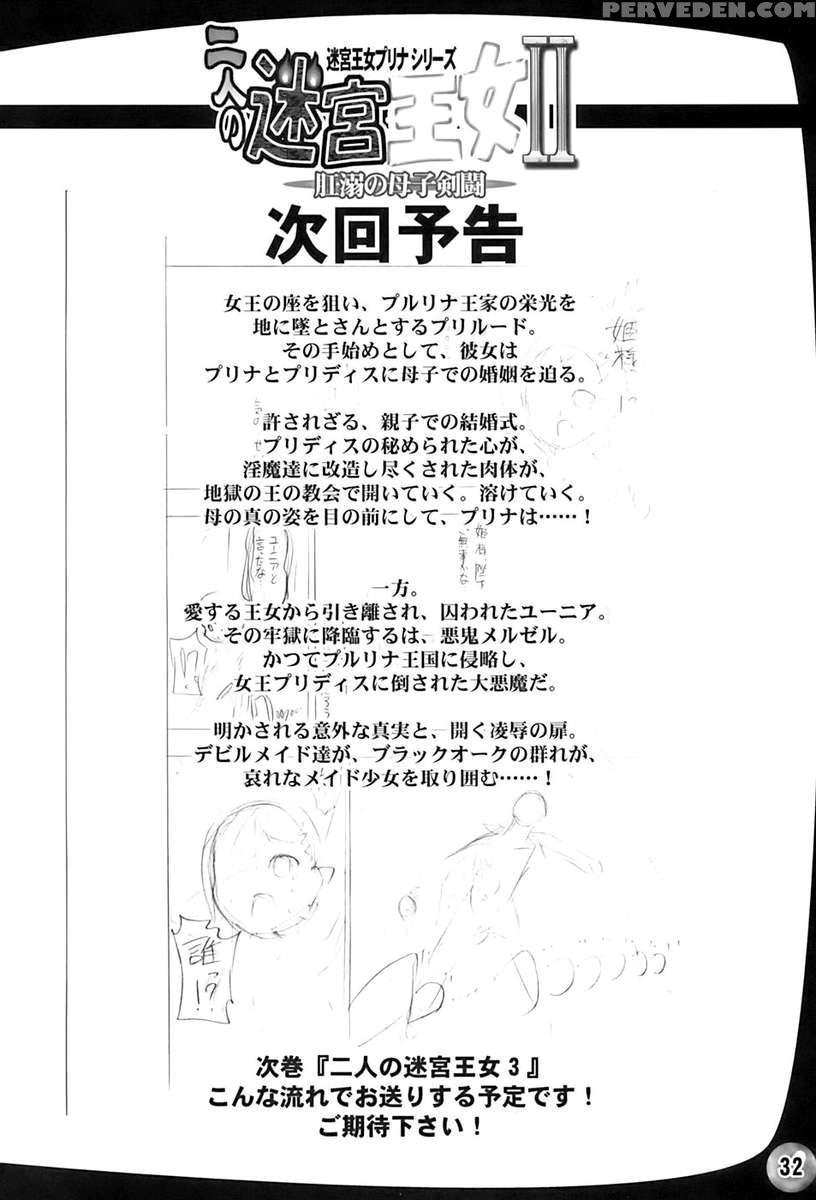 PERVEDEN.COM
迷宮王女プリナシリーズ
二人の迷宮王女II
肛溺の母子剣闘
次回予告
女王の座を狙い、プルリナ王家の栄光を
地に墜とさんとするプリルード。
その手始めとして、彼女は
プリナとプリディスに母子での婚姻を迫る。
許されざる、親子での結婚式。
プリディスの秘められた心が、
淫魔達に改造し尽くされた肉体が、
地獄の王の教会で開いていく。溶けていく。
母の真の姿を目の前にして、プリナは……！
一方。
愛する王女から引き離され、囚われたユーニア。
その牢獄に降臨するは、悪鬼メルゼル。
かつてプルリナ王国に侵略し、
女王プリディスに倒された大悪魔だ。
明かされる意外な真実と、開く凌辱の扉。
デビルメイド達が、ブラックオークの群れが、
哀れなメイド少女を取り囲む……！
姫様！？
ユーニアと
言ったな
！？
誰！？
次巻『二人の迷宮王女３』
こんな流れでお送りする予定です！
ご期待下さい！
32